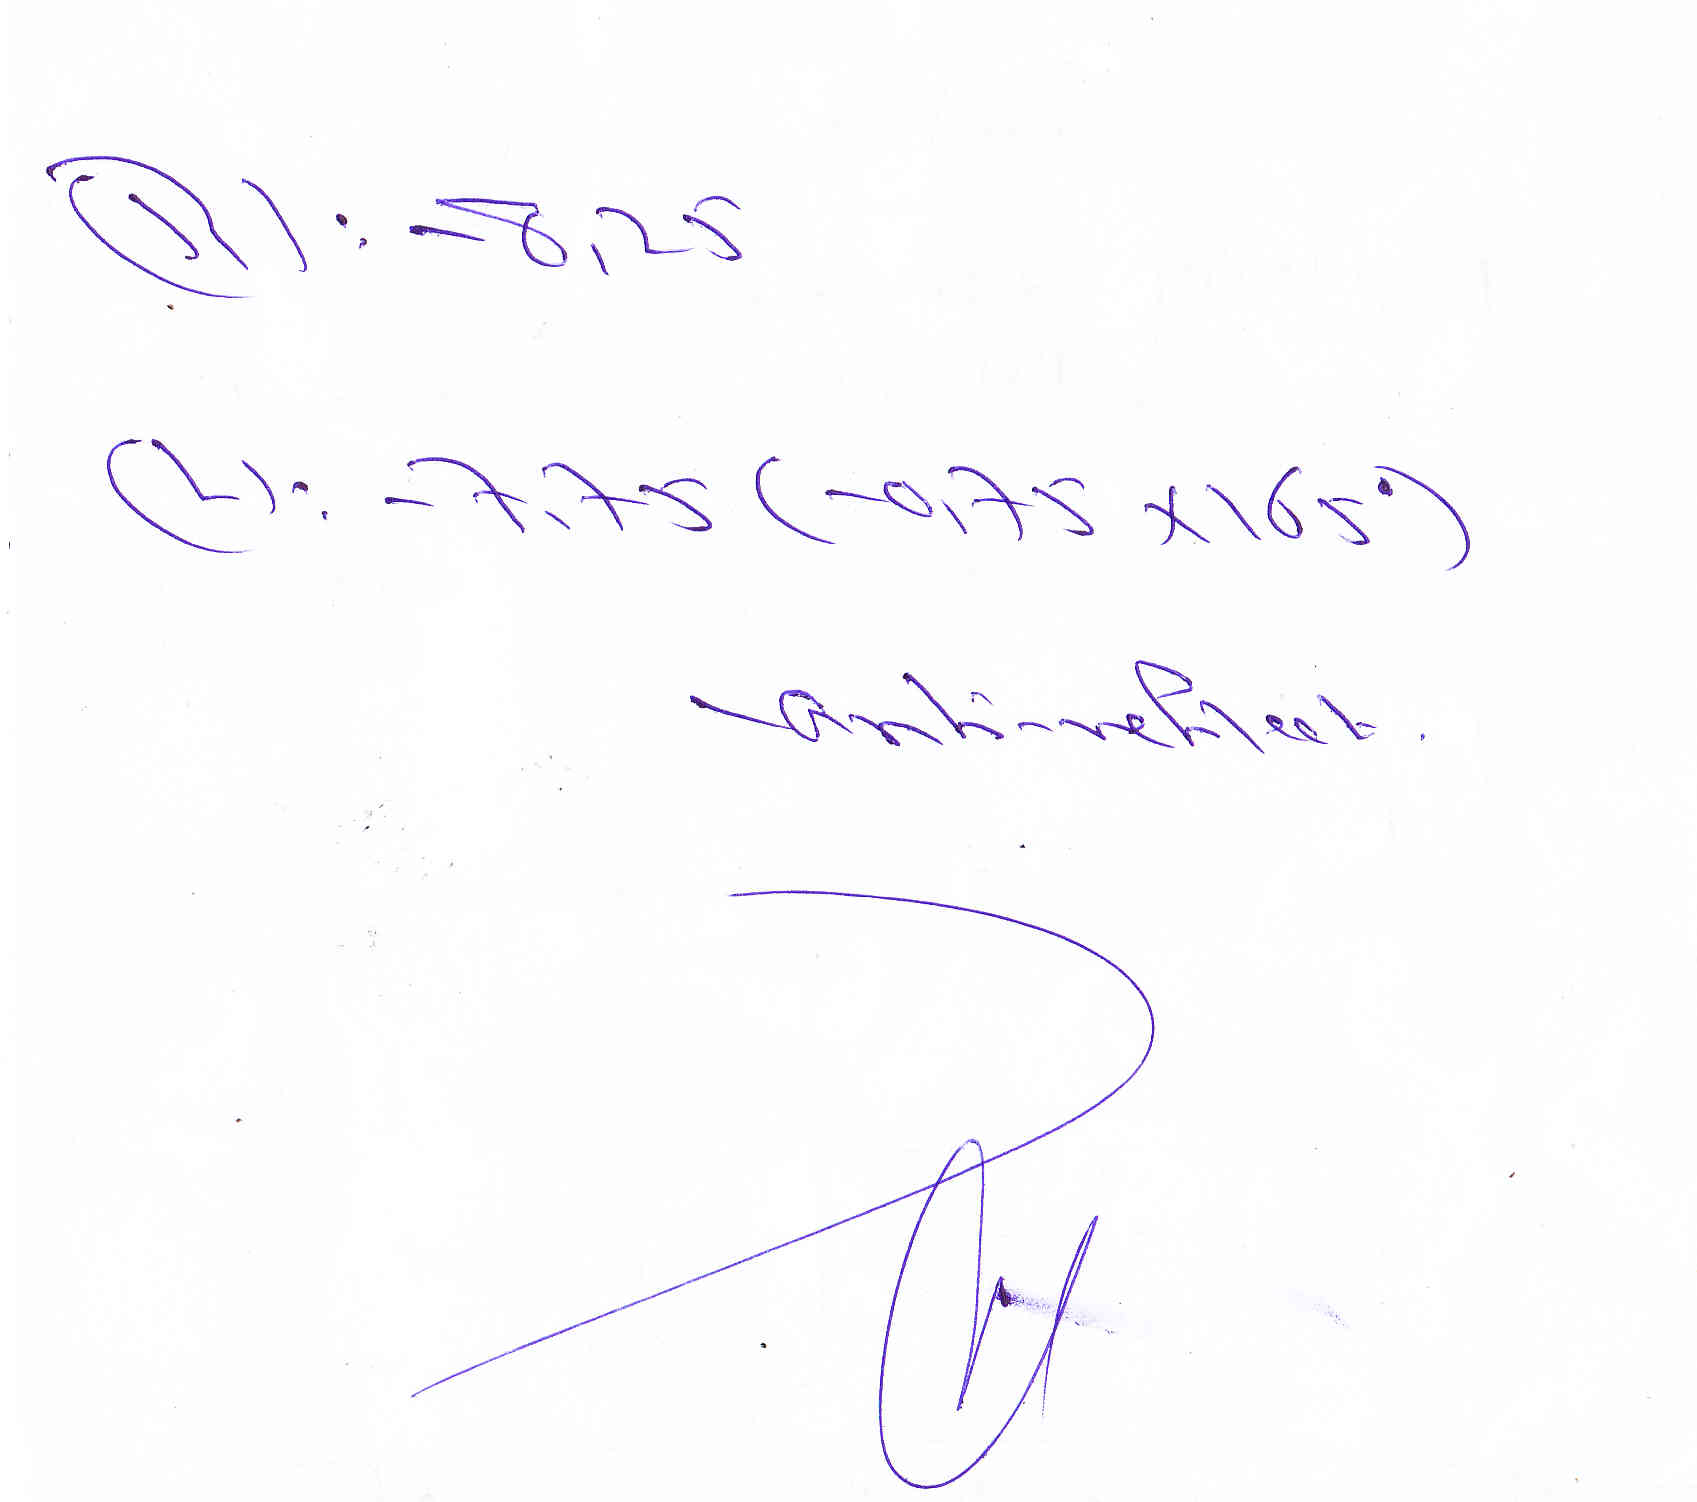 (R): -8,25
(L): -7,75 (-0,75 x 165°)
- anti-reflect.